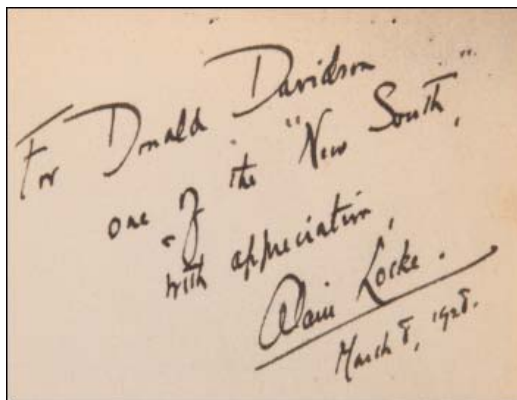 For Donald Davidson
one of the "New South,"
with appreciation,
Alain Locke.
March 8, 1928.